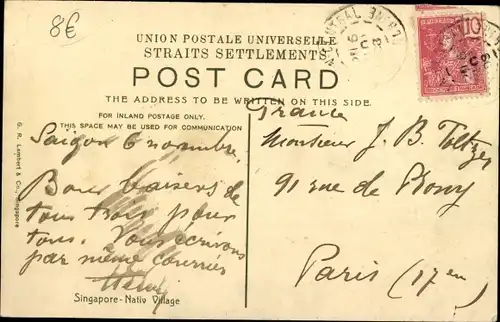 8€
UNION POSTALE UNIVERSELLE
STRAITS SETTLEMENTS
POST CARD
THE ADDRESS TO BE WRITTEN ON THIS SIDE.
FOR INLAND POSTAGE ONLY.
THIS SPACE MAY BE USED FOR COMMUNICATION
G. R. Lambert & Co., Singapore
Saigon 6 novembre.
Bons baisers de
tous trois pour
tous. Vous écrivons
par même courrier
Henry
Singapore - Nativ Village
10
France
Monsieur J. B.
91 rue de Prony
Paris (17em)